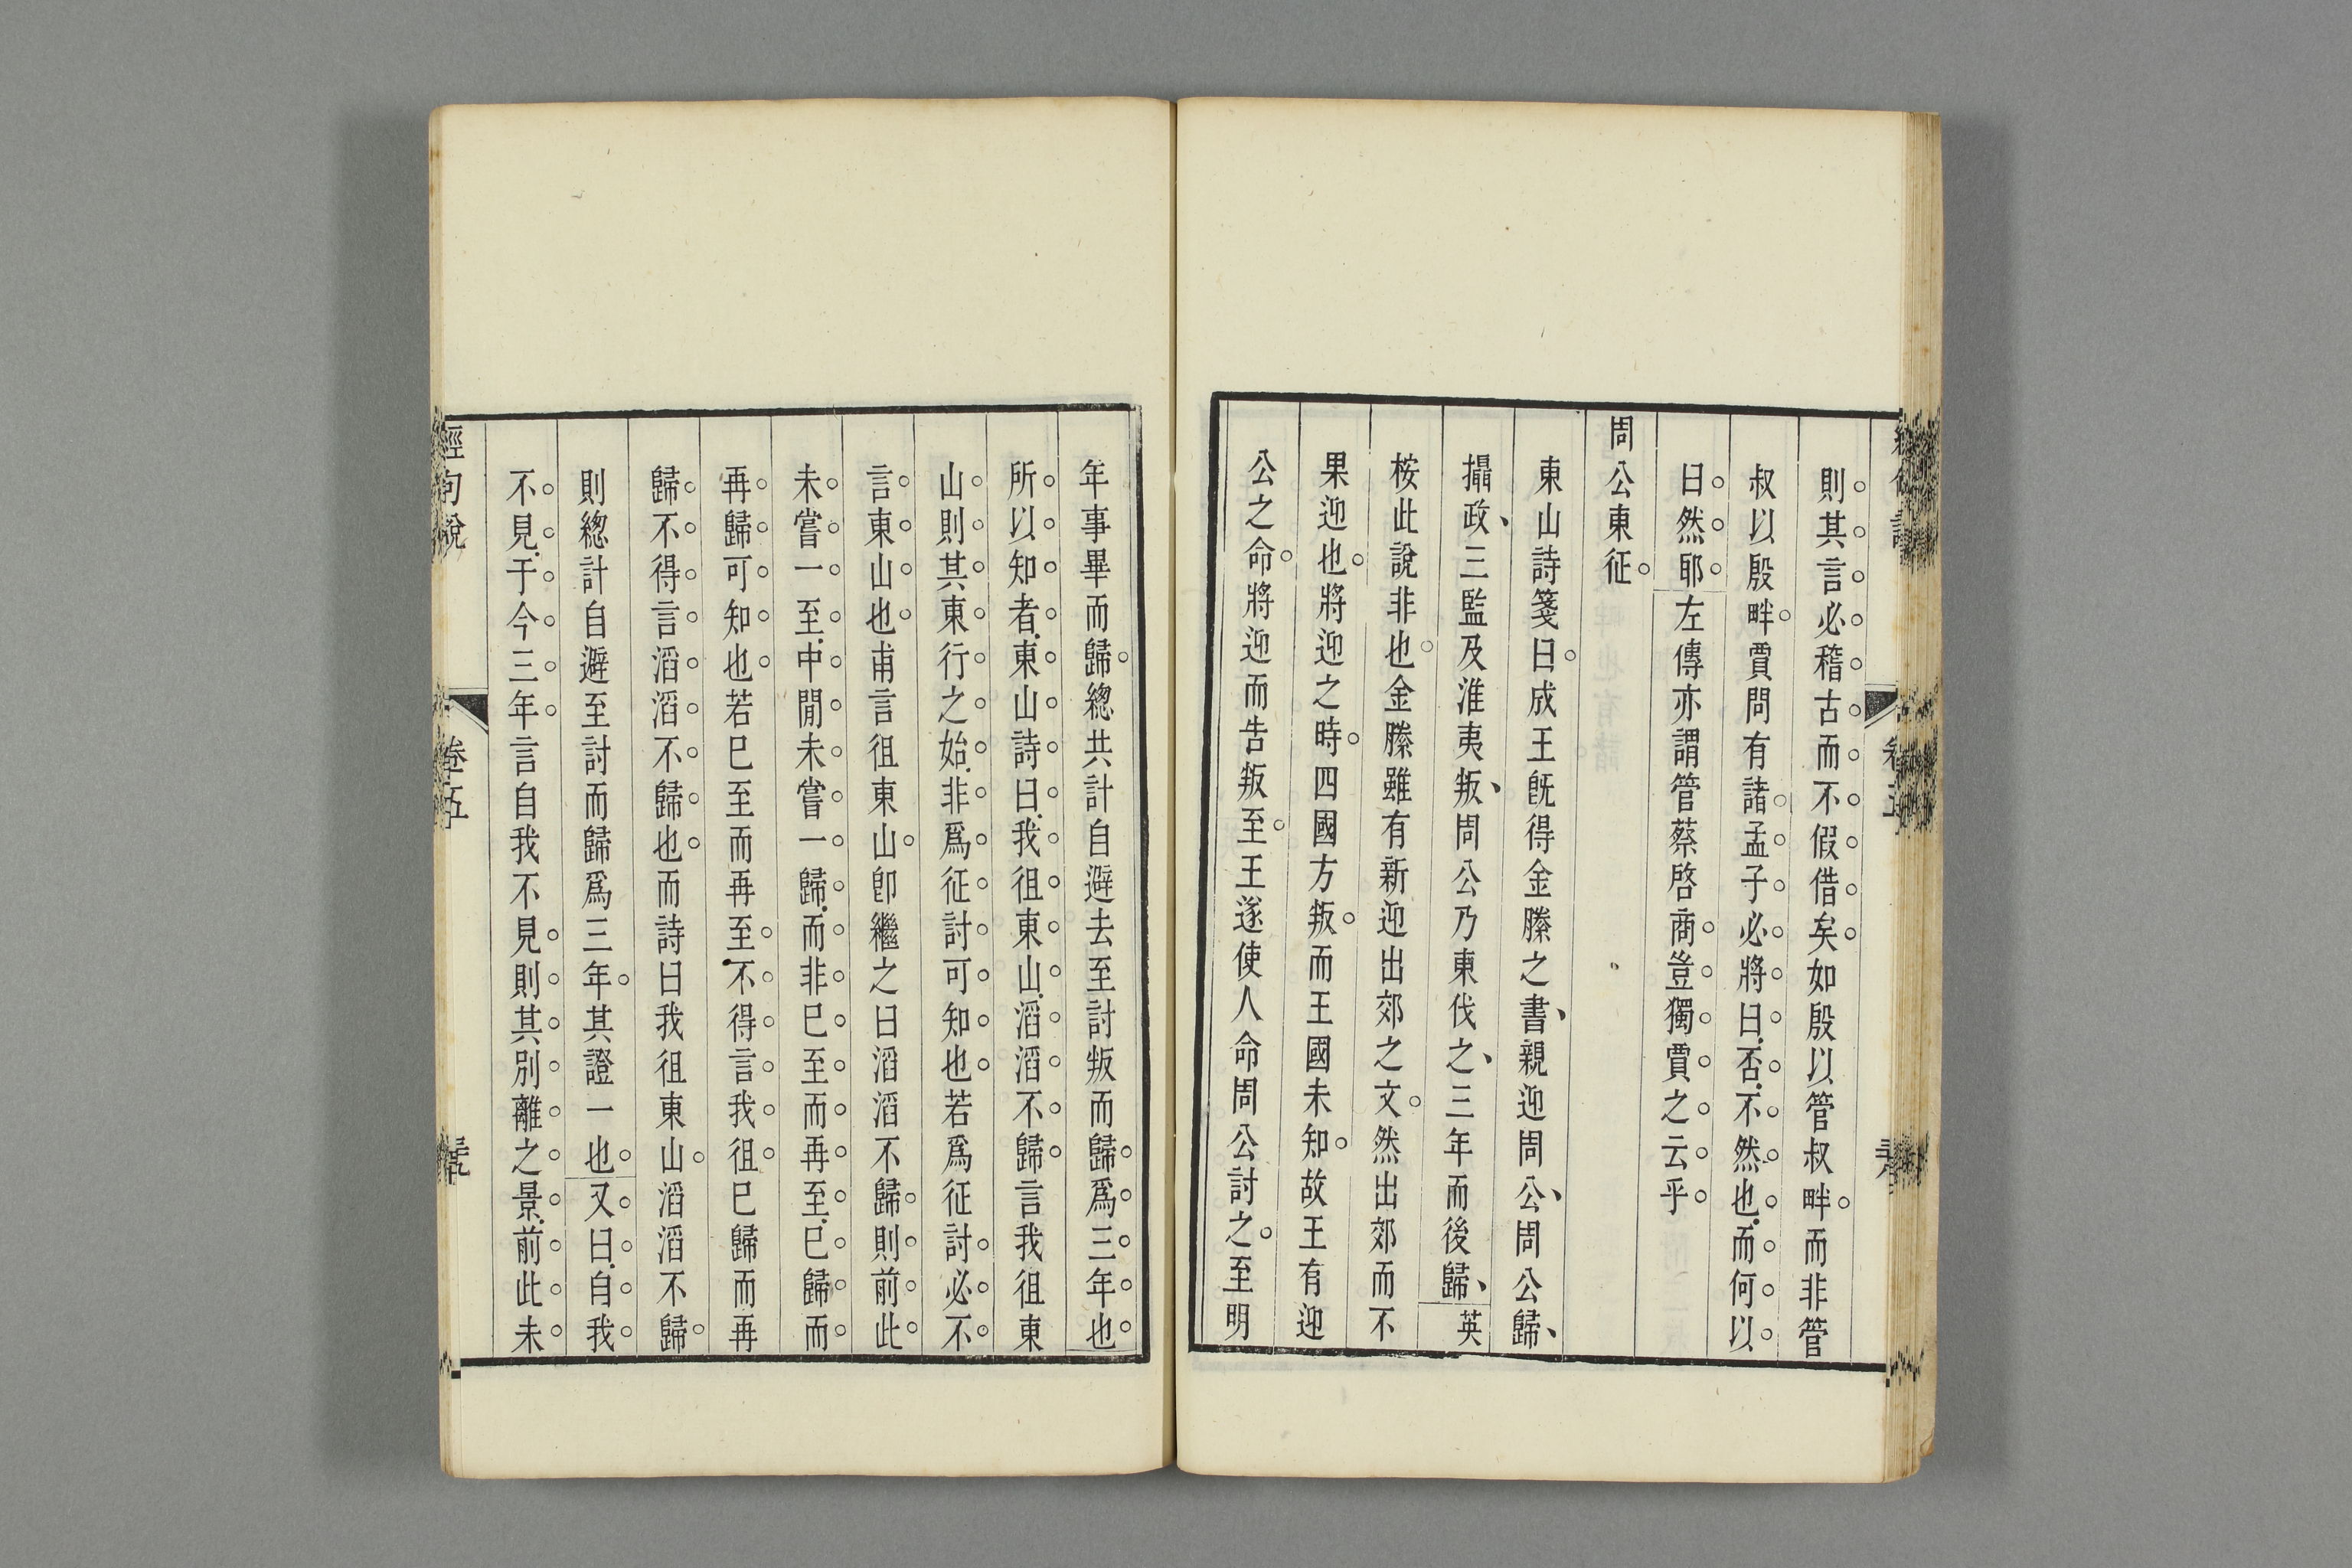 則其言必稽古而不假借矣如殷以管叔畔而非管
叔以殷畔賈問有諸孟子必將曰否不然也而何以
曰然耶左傳亦謂管蔡啓商豈獨賈之云乎
周公東征
東山詩箋曰成王旣得金縢之書親迎周公周公歸
攝政三監及淮夷叛周公乃東伐之三年而後歸英
桉此說非也金縢雖有新迎出郊之文然出郊而不
果迎也將迎之時四國方叛而王國未知故王有迎
公之命將迎而告叛至王遂使人命周公討之至明
年事畢而歸總共計自避去至討叛而歸爲三年也
所以知者東山詩曰我徂東山滔滔不歸言我徂東
山則其東行之始非爲征討可知也若爲征討必不
言東山也甫言徂東山卽繼之曰滔滔不歸則前此
未嘗一至中閒未嘗一歸而非巳至而再至巳歸而
再歸可知也若巳至而再至不得言我徂巳歸而再
歸不得言滔滔不歸也而詩曰我徂東山滔滔不歸
則總計自避至討而歸爲三年其證一也又曰自我
不見于今三年言自我不見則其別離之景前此未
經句說
卷五